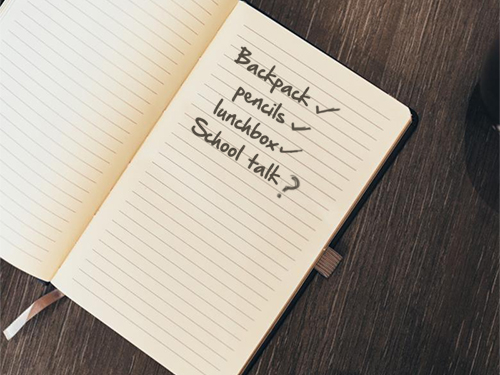 Backpack ✓
pencils ✓
lunchbox ✓
School talk?